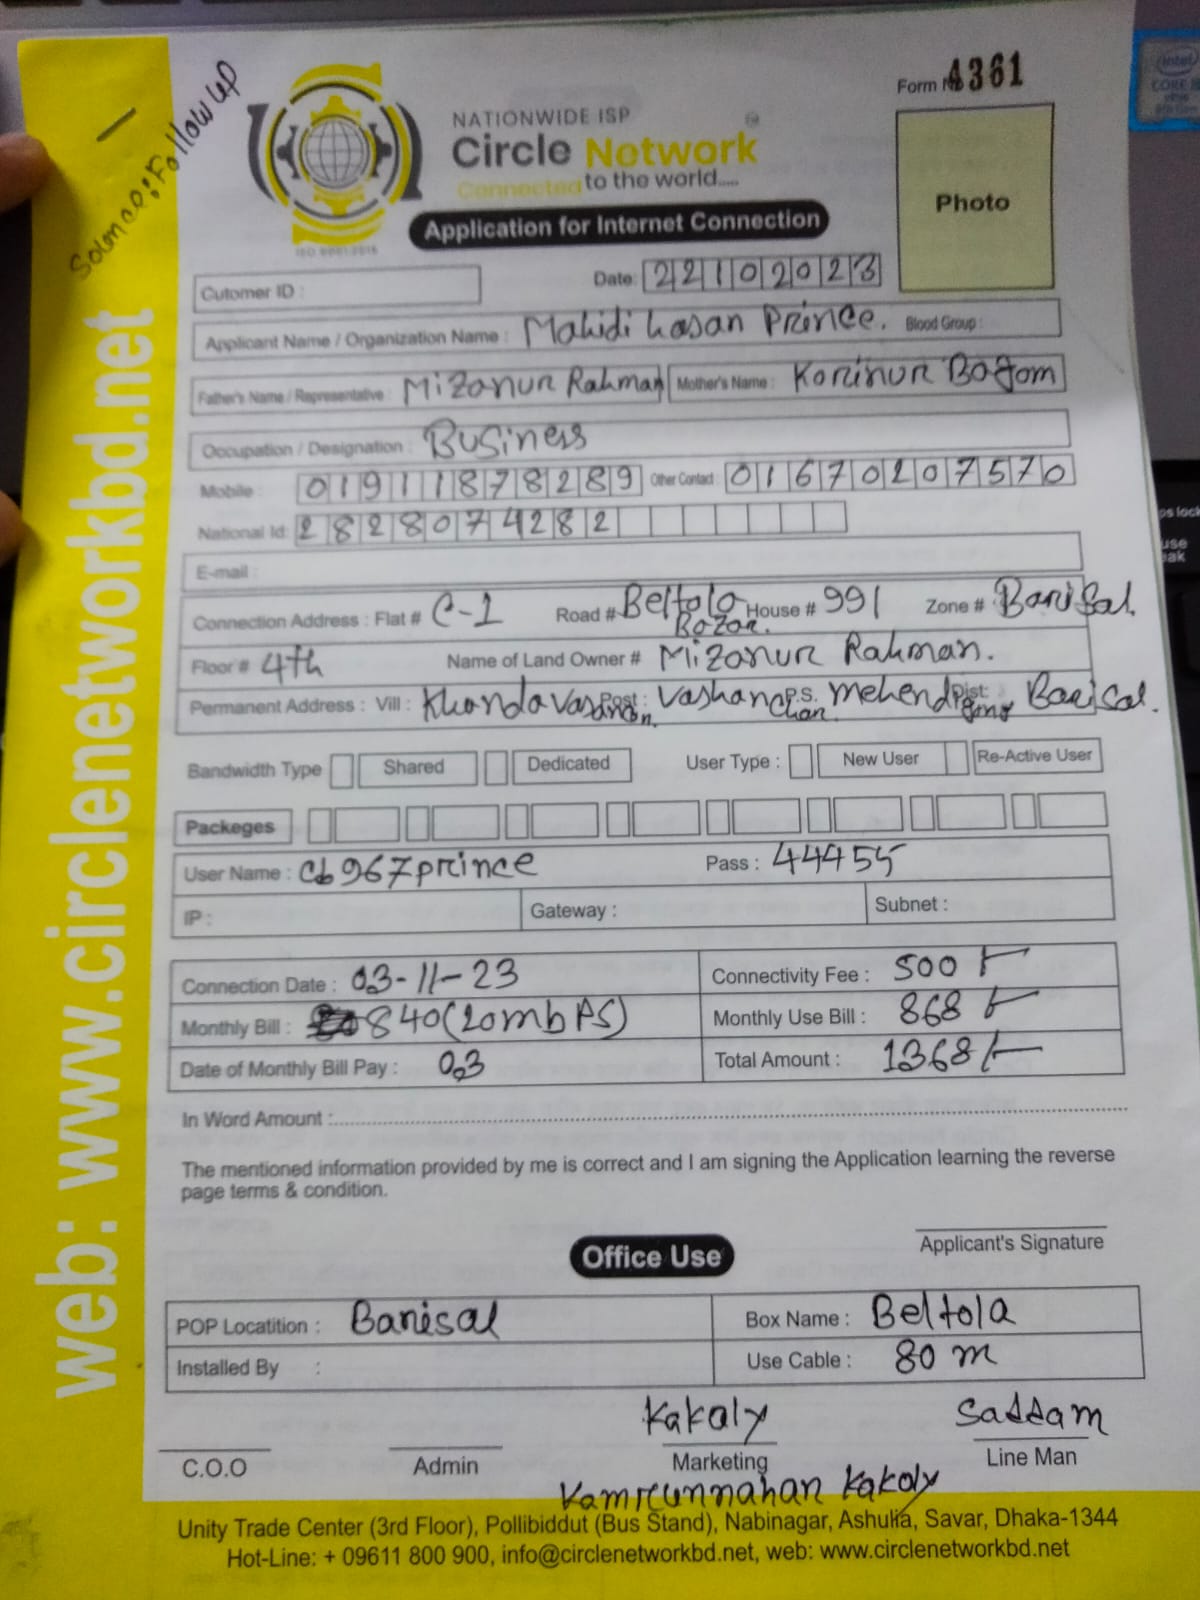 Solance: Follow up
Form No 4361
NATIONWIDE ISP
Circle Network
Connected to the world.....
ISO 9001:2015
Application for Internet Connection
Photo
Date: 22102023
Cutomer ID :
Applicant Name / Organization Name : Mahidi hasan Prince. Blood Group :
Father's Name / Representative : Mizanur Rahman Mother's Name : Korinur Bogom
Occupation / Designation : Business
Mobile : 01911878289 Other Contact : 01670207570
National Id: 2828074282
E-mail :
Connection Address : Flat # C-1 Road # Beltola Bazar. House # 991 Zone # Barisal.
Floor # 4th Name of Land Owner # Mizanur Rahman.
Permanent Address : Vill : Post : Vashanchar. P.S. Mehendigonj Dist: Barisal.
Bandwidth Type Shared Dedicated User Type : New User Re-Active User
Packeges
User Name : cb967prince Pass : 44455
IP : Gateway : Subnet :
Connection Date : 03-11-23 Connectivity Fee : 500 /-
Monthly Bill : 840 (20mbps) Monthly Use Bill : 868 /-
Date of Monthly Bill Pay : 03 Total Amount : 1368/-
In Word Amount :
The mentioned information provided by me is correct and I am signing the Application learning the reverse
page terms & condition.
Applicant's Signature
Office Use
POP Locatition : Barisal Box Name : Beltola
Installed By : Use Cable : 80 m
Kakaly Saddam
C.O.O Admin Marketing Line Man
Kamrunnahan Kakaly
Unity Trade Center (3rd Floor), Pollibiddut (Bus Stand), Nabinagar, Ashulia, Savar, Dhaka-1344
Hot-Line: + 09611 800 900, info@circlenetworkbd.net, web: www.circlenetworkbd.net
web: www.circlenetworkbd.net
intel
CORE